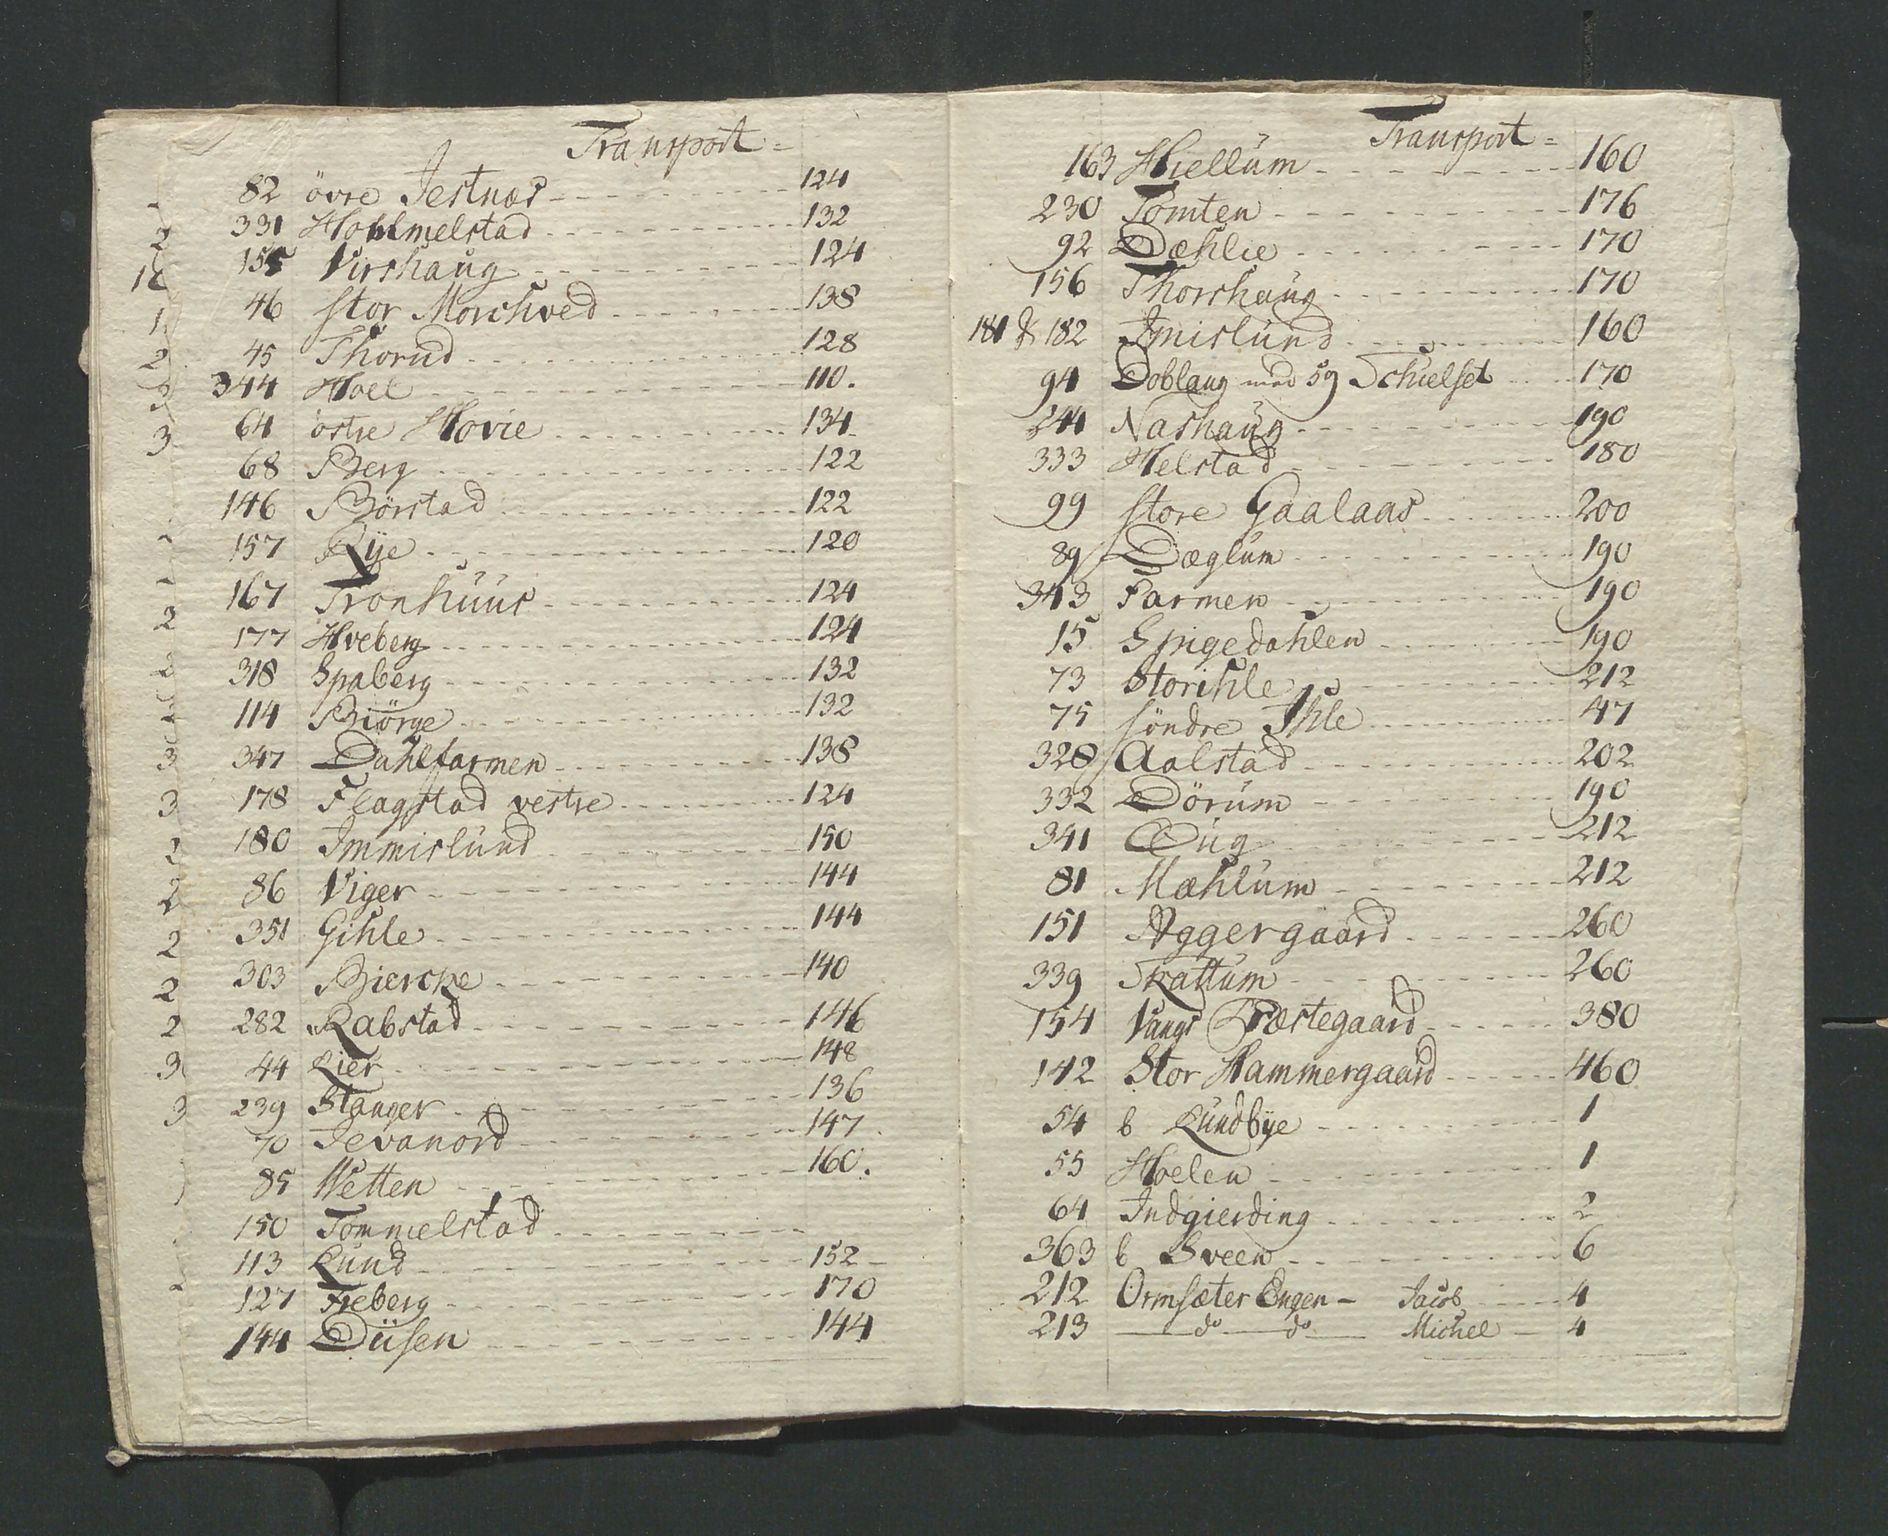 Transport =
82 övre Jestnæs 124
331 Hohlmelstad 132
155 Virshaug 124
46 stor Morchved 138
45 Thorud 128
344 Hoel 110.
64 östre Hovie 134
68 Berg 122
146 Börstad 122
157 Rÿe 120
167 Tronhuus 124
177 Hveberg 124
318 Spaberg 132
114 Biörge 132
347 Dahlfarmen 138
178 Flagstad vestre 124
180 Immislund 150
86 Viger 144
351 Gihle 144
303 Biercke 140
282 Rabstad 146
44 Lier 148
239 Stanger 136
70 Jevanord 147
85 Vetten 160.
150 Tommelstad
113 Lund 152
127 Freberg 170
144 Düsen 144
Transport =
163 Hiellum 160
230 Tomten 176
92 Dæhlie 170
156 Thorshaug 170
181 & 182 Imislund 160
94 Doblaug med 59 Schielset 170
244 Nashaug 190
333 Helstad 180
99 store Gaalaas 200
89 Dæglum 190
343 Farmen 190
15 Spigedahlen 190
73 Storihle 212
75 söndre Ihle 47
328 Aalstad 202
332 Dörum 190
341 Oug 212
81 Mæhlum 212
151 Aggergaard 260
339 Skattum 260
154 Vangs Præstegaard 380
142 Stor Hammergaard 460
54 b Lundbÿe 1
55 Hoelen 1
64 Indgierding 2
363 b Sveen 6
212 Ormsæter Engen - Jacob 4
213 do do Michel 4